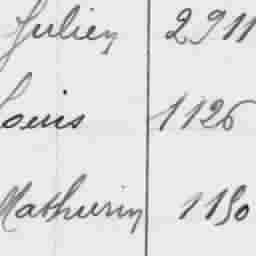 Julien 2911
Louis 1126
Mathurin 1150